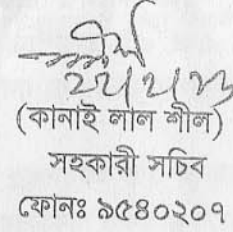 (কানাই লাল শীল)
সহকারী সচিব
ফোনঃ ৯৫৪০২০৭